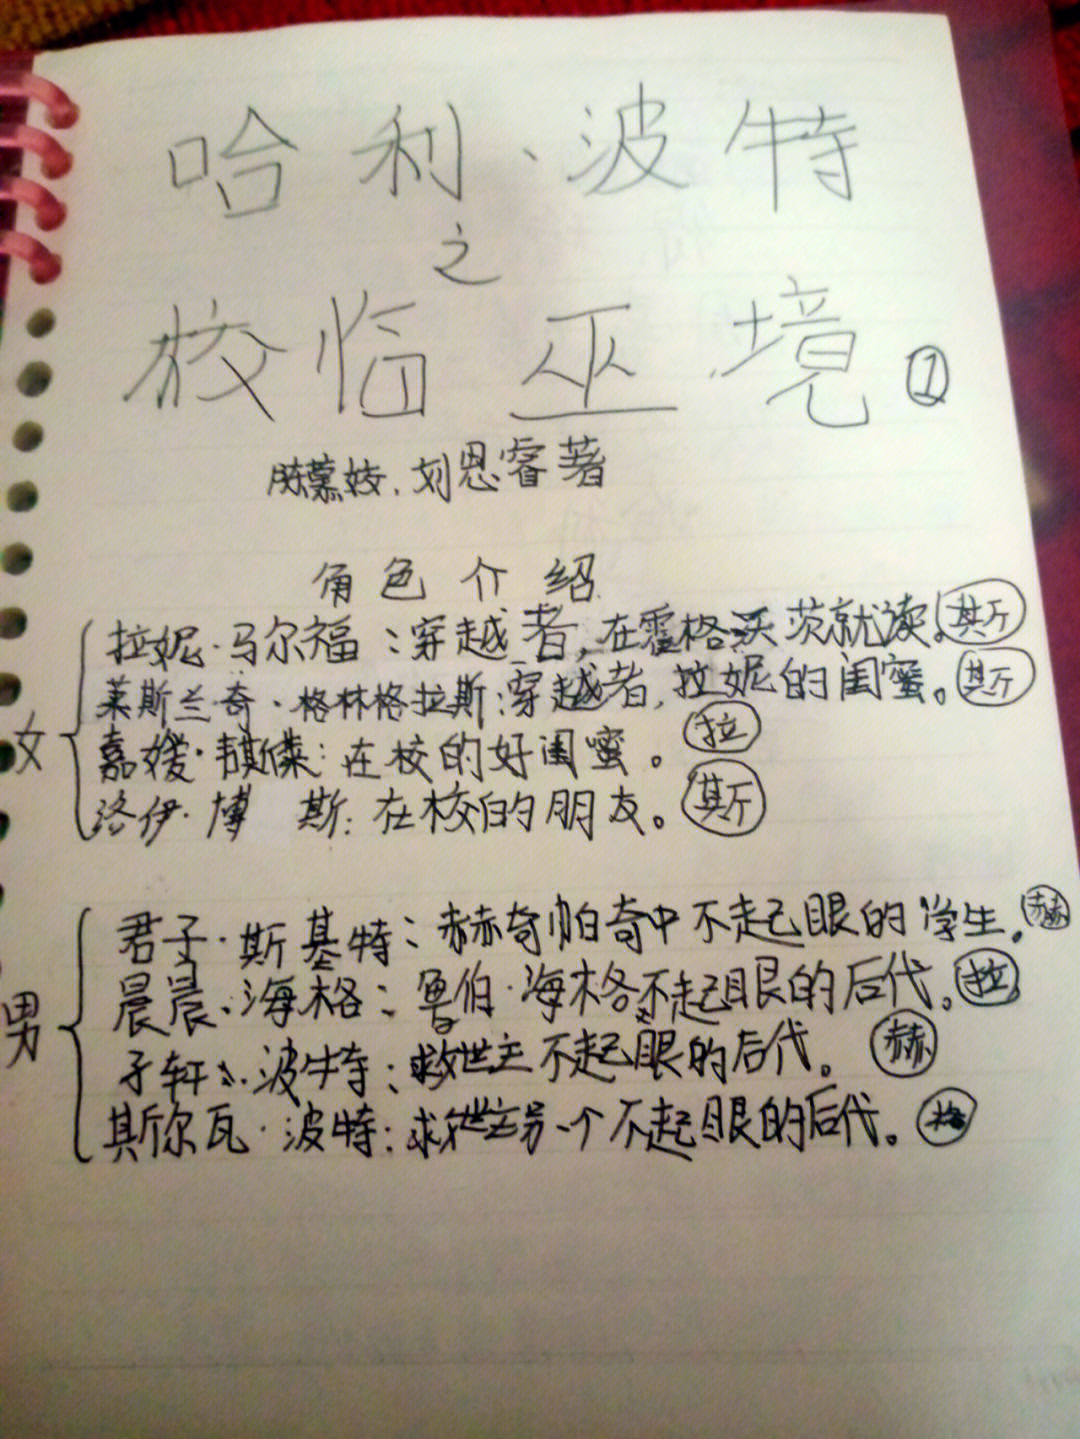 哈利·波特
之
校临巫境①
陈慕妏.刘思睿著
角色介绍
女
拉妮·马尔福:穿越者,在霍格沃茨就读。斯
莱斯兰奇·格林格拉斯:穿越者,拉妮的闺蜜。斯
嘉媛·:在校的好闺蜜。拉
洛伊·博 斯:在校的朋友。斯
男
君子·斯基特:赫奇帕奇中不起眼的学生.赫
晨晨·海格:鲁伯·海格不起眼的后代。拉
子轩·波特:救世主不起眼的后代。赫
斯尔瓦·波特:救世主另一个不起眼的后代。格